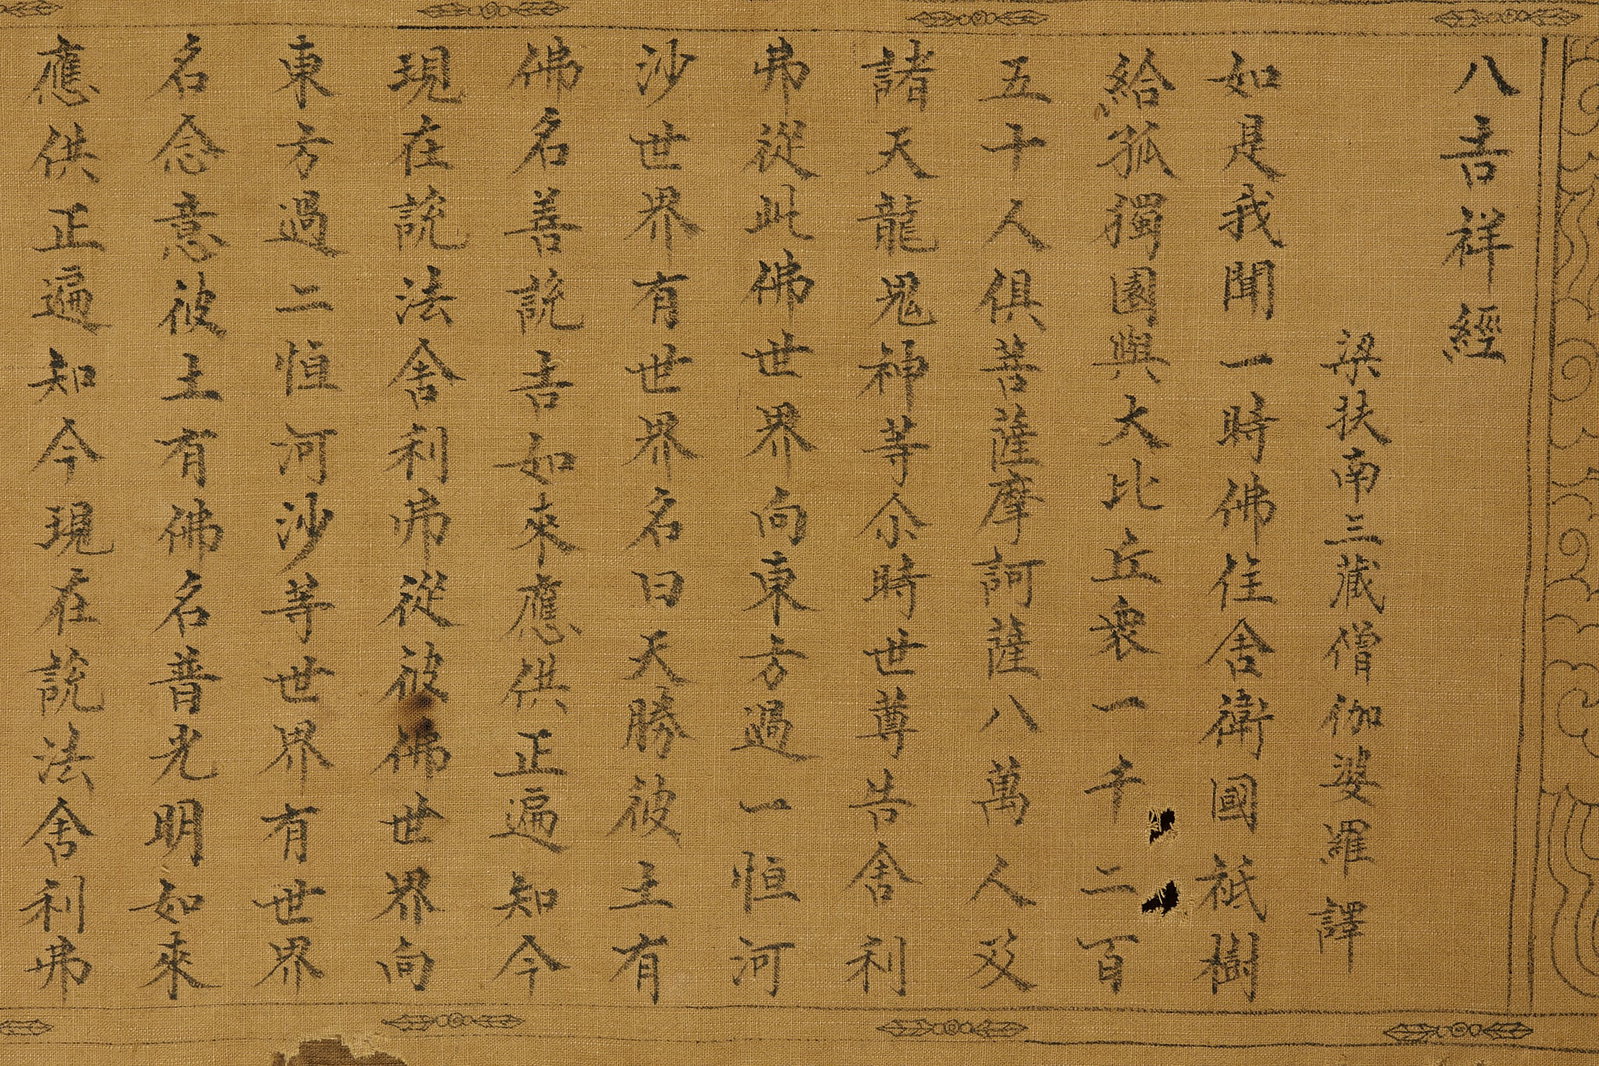 八吉祥經
梁扶南三藏僧伽婆羅譯
如是我聞一時佛住舍衛國祇樹
給孤獨園與大比丘衆一千二百
五十人俱菩薩摩訶薩八萬人及
諸天龍鬼神等尒時世尊告舍利
弗從此佛世界向東方過一恒河
沙世界有世界名曰天勝彼土有
佛名善說吉如來應供正遍知今
現在說法舍利弗從彼佛世界向
東方過二恒河沙等世界有世界
名念意彼土有佛名普光明如來
應供正遍知今現在說法舍利弗